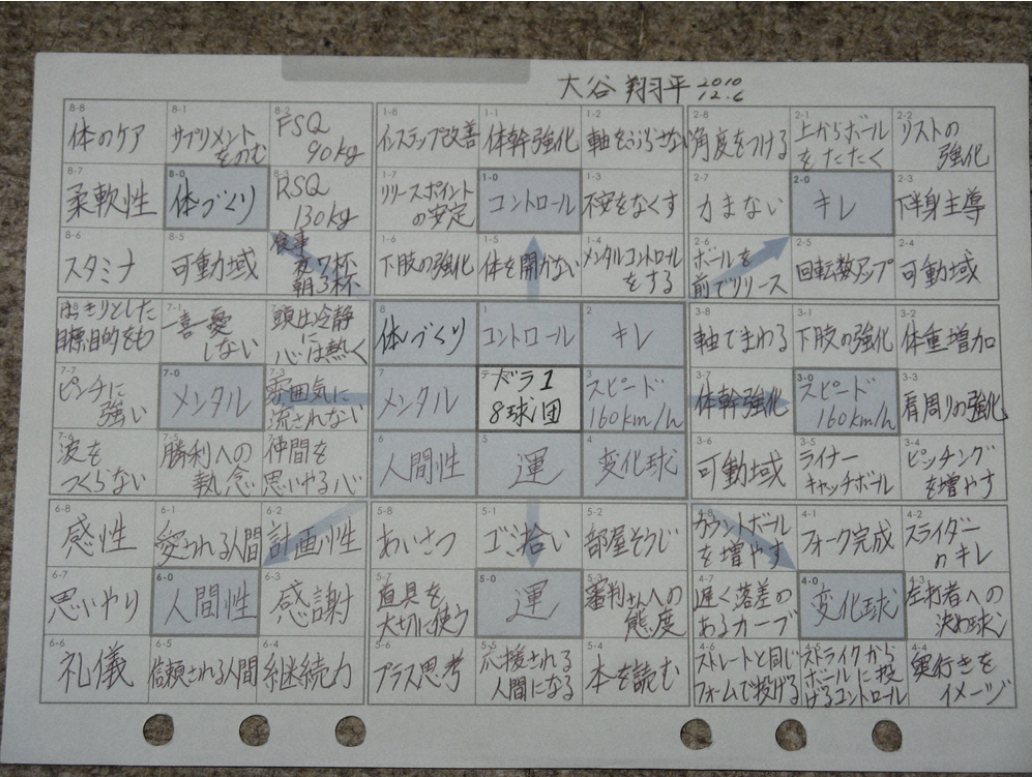 大谷 翔平 2010 12.6
8-8 体のケア
8-1 サプリメントをのむ
8-2 FSQ 90kg
1-8 インステップ改善
1-1 体幹強化
1-2 軸をぶらさない
2-8 角度をつける
2-1 上からボールをたたく
2-2 リストの強化
8-7 柔軟性
8-0 体づくり
8-3 RSQ 130kg
1-7 リリースポイントの安定
1-0 コントロール
1-3 不安をなくす
2-7 力まない
2-0 キレ
2-3 下半身主導
8-6 スタミナ
8-5 可動域
食事 夜7杯 朝3杯
1-6 下肢の強化
1-5 体を開かない
1-4 メンタルコントロールをする
2-6 ボールを前でリリース
2-5 回転数アップ
2-4 可動域
はっきりとした目標、目的をもつ
7-1 一喜一憂しない
頭は冷静に心は熱く
8 体づくり
1 コントロール
2 キレ
3-8 軸でまわる
3-1 下肢の強化
3-2 体重増加
7-7 ピンチに強い
7-0 メンタル
7-3 雰囲気に流されない
7 メンタル
ドラ1 8球団
3 スピード 160km/h
3-7 体幹強化
3-0 スピード 160km/h
3-3 肩周りの強化
7-6 波をつくらない
7-5 勝利への執念
仲間を思いやる心
6 人間性
5 運
4 変化球
3-6 可動域
3-5 ライナーキャッチボール
3-4 ピッチングを増やす
6-8 感性
6-1 愛される人間
6-2 計画性
5-8 あいさつ
5-1 ゴミ拾い
5-2 部屋そうじ
4-8 カウントボールを増やす
4-1 フォーク完成
4-2 スライダーのキレ
6-7 思いやり
6-0 人間性
6-3 感謝
5-7 道具を大切に使う
5-0 運
5-3 審判さんへの態度
4-7 遅く落差のあるカーブ
4-0 変化球
4-3 左打者への決め球
6-6 礼儀
6-5 信頼される人間
6-4 継続力
5-6 プラス思考
5-5 応援される人間になる
5-4 本を読む
4-6 ストレートと同じフォームで投げる
ストライクからボールに投げるコントロール
4-4 奥行きをイメージ